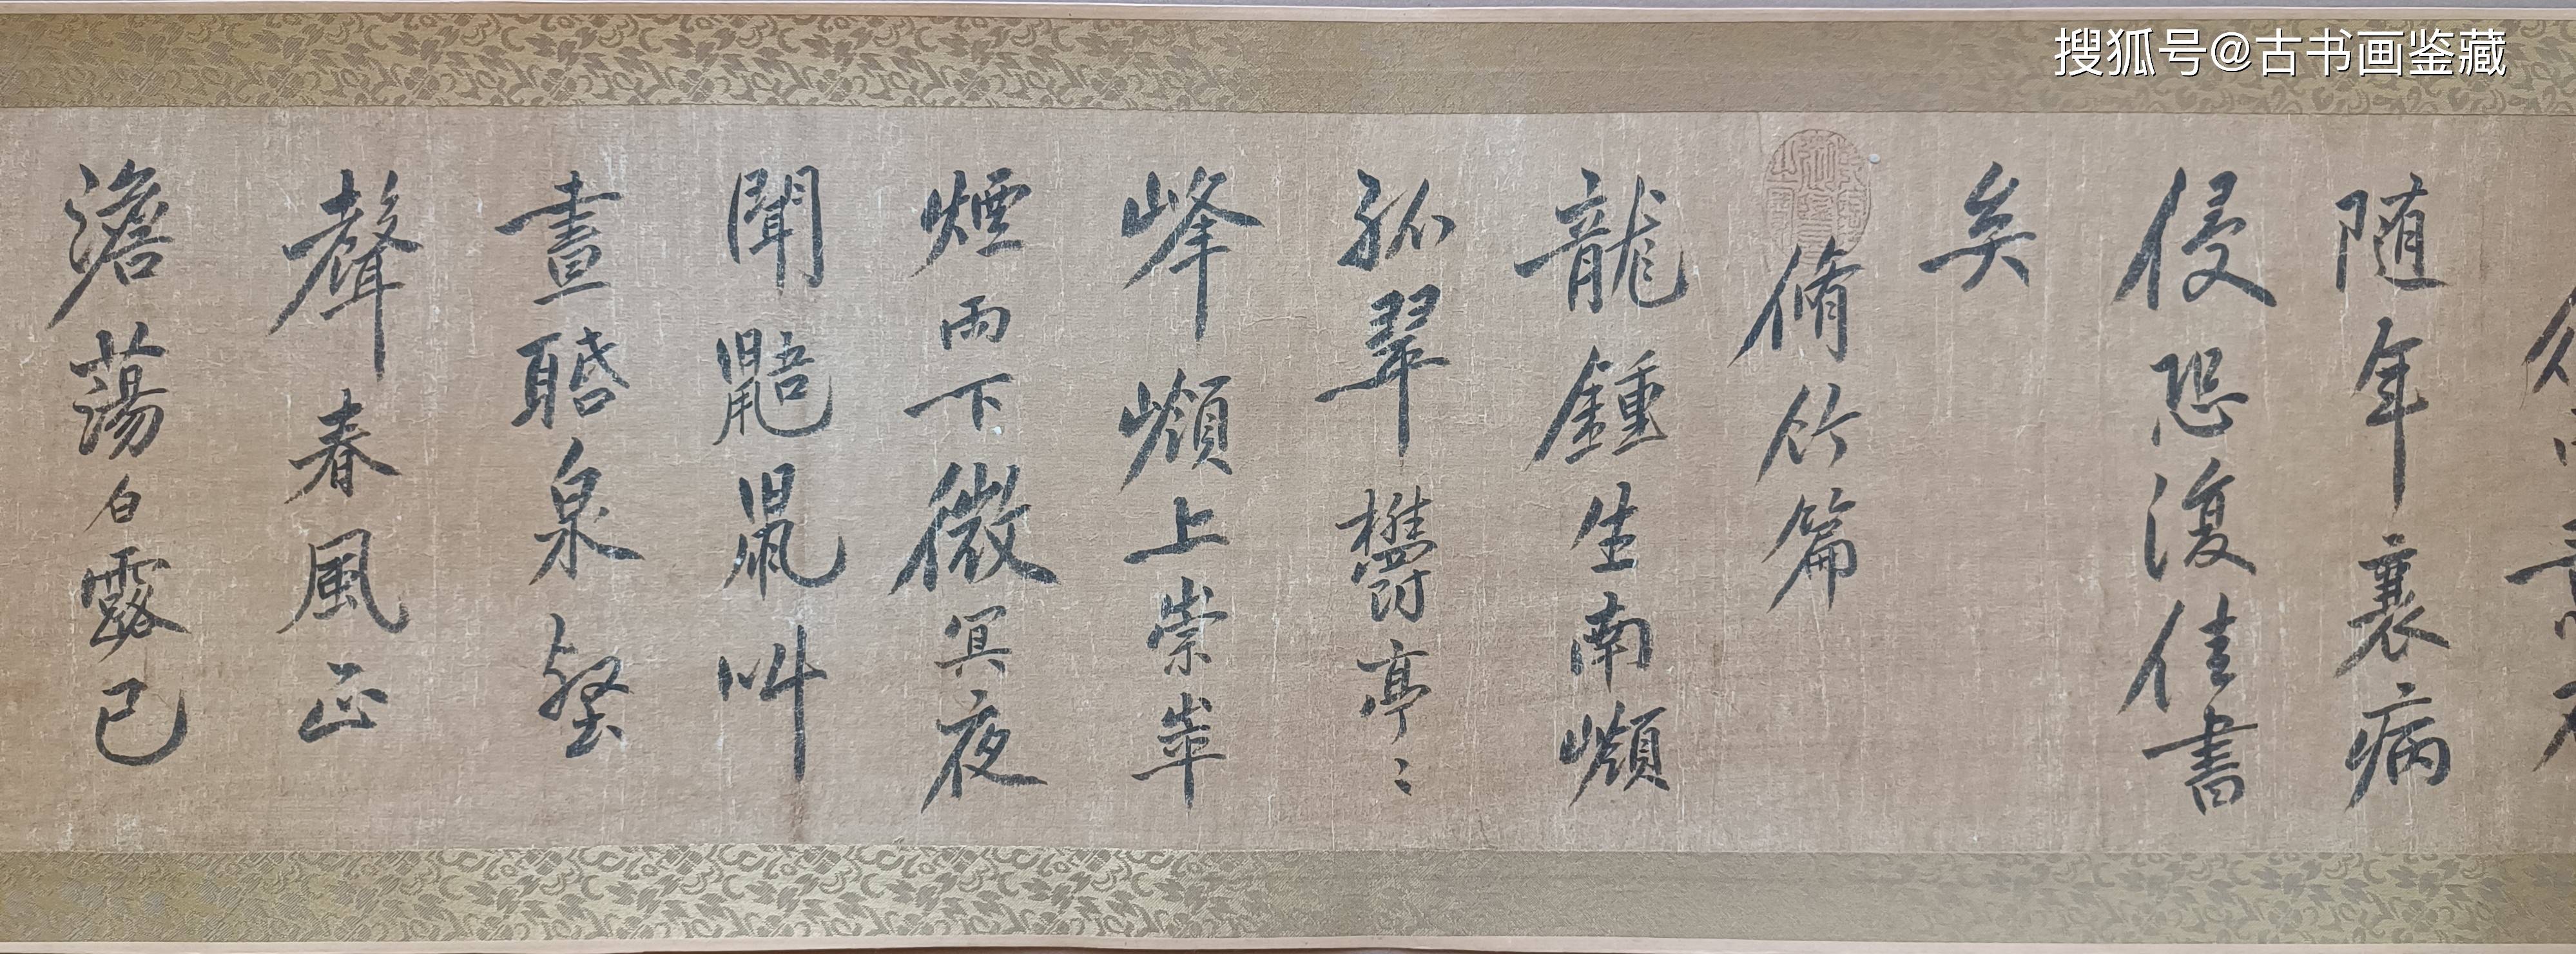 搜狐号@古书画鉴藏
随年衰病
侵恐復佳書
矣
脩竹篇
龍鍾生南嶽
孤翠鬱亭〻
峰嶺上崇崒
煙雨下微冥夜
聞鼯鼠叫
晝聒泉壑
聲春風正
澹蕩白露已